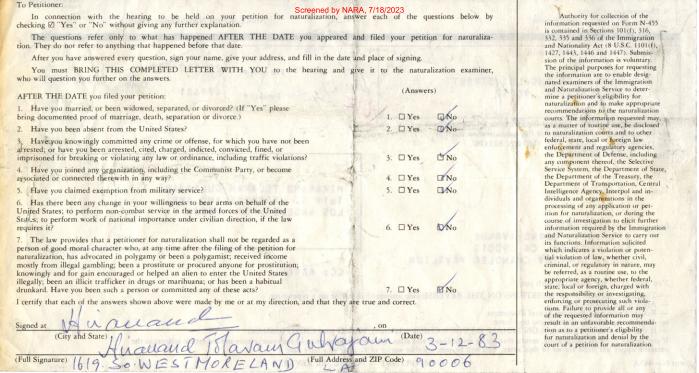 Screened by NARA, 7/18/2023
To Petitioner:
In connection with the hearing to be held on your petition for naturalization, answer each of the questions below by
checking ☑ "Yes" or "No" without giving any further explanation.
The questions refer only to what has happened AFTER THE DATE you appeared and filed your petition for naturaliza-
tion. They do not refer to anything that happened before that date.
After you have answered every question, sign your name, give your address, and fill in the date and place of signing.
You must BRING THIS COMPLETED LETTER WITH YOU to the hearing and give it to the naturalization examiner,
who will question you further on the answers.
AFTER THE DATE you filed your petition:
(Answers)
1. Have you married, or been widowed, separated, or divorced? (If "Yes" please
bring documented proof of marriage, death, separation or divorce.)
1. ☐ Yes ☑ No
2. Have you been absent from the United States?
2. ☐ Yes ☑ No
3. Have you knowingly committed any crime or offense, for which you have not been
arrested; or have you been arrested, cited, charged, indicted, convicted, fined, or
imprisoned for breaking or violating any law or ordinance, including traffic violations?
3. ☐ Yes ☑ No
4. Have you joined any organization, including the Communist Party, or become
associated or connected therewith in any way?
4. ☐ Yes ☑ No
5. Have you claimed exemption from military service?
5. ☐ Yes ☑ No
6. Has there been any change in your willingness to bear arms on behalf of the
United States; to perform non-combat service in the armed forces of the United
States; to perform work of national importance under civilian direction, if the law
requires it?
6. ☐ Yes ☑ No
7. The law provides that a petitioner for naturalization shall not be regarded as a
person of good moral character who, at any time after the filing of the petition for
naturalization, has advocated in polygamy or been a polygamist; received income
mostly from illegal gambling; been a prostitute or procured anyone for prostitution;
knowingly and for gain encouraged or helped an alien to enter the United States
illegally; been an illicit trafficker in drugs or marihuana; or has been a habitual
drunkard. Have you been such a person or committed any of these acts?
7. ☐ Yes ☑ No
I certify that each of the answers shown above were made by me or at my direction, and that they are true and correct.
Signed at Hiranand , on
(City and State) (Date) 3-12-83
Hiranand
(Full Signature) (Full Address and ZIP Code)
1619. SO. WESTMORELAND LA 90006
Authority for collection of the
information requested on Form N-455
is contained in Sections 101(f), 316,
332, 335 and 336 of the Immigration
and Nationality Act (8 U.S.C. 1101(f),
1427, 1443, 1446 and 1447). Submis-
sion of the information is voluntary.
The principal purposes for requesting
the information are to enable desig-
nated examiners of the Immigration
and Naturalization Service to deter-
mine a petitioner's eligibility for
naturalization and to make appropriate
recommendations to the naturalization
courts. The information requested may
as a matter of routine use, be disclosed
to naturalization courts and to other
federal, state, local or foreign law
enforcement and regulatory agencies,
the Department of Defense, including
any component thereof, the Selective
Service System, the Department of State,
the Department of the Treasury, the
Department of Transportation, Central
Intelligence Agency, Interpol and in-
dividuals and organizations in the
processing of any application or pet-
ition for naturalization, or during the
course of investigation to elicit further
information required by the Immigration
and Naturalization Service to carry out
its functions. Information solicited
which indicates a violation or poten-
tial violation of law, whether civil,
criminal, or regulatory in nature, may
be referred, as a routine use, to the
appropriate agency, whether federal,
state, local or foreign, charged with
the responsibility of investigating,
enforcing or prosecuting such viola-
tions. Failure to provide all or any
of the requested information may
result in an unfavorable recommenda-
tion as to a petitioner's eligibility
for naturalization and denial by the
court of a petition for naturalization.